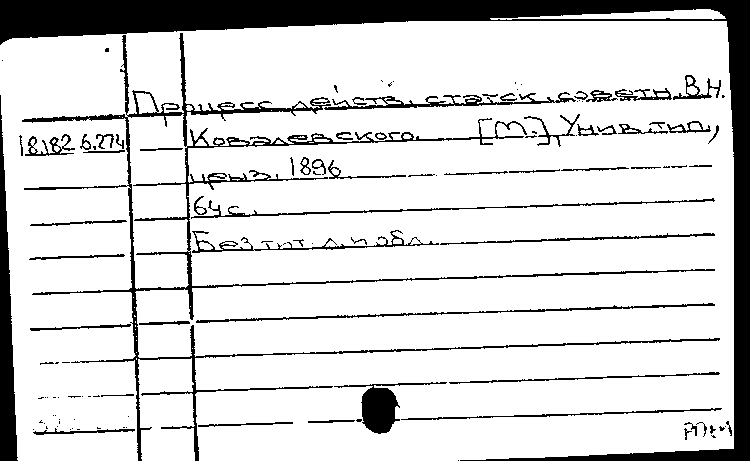 Процесс действ. статск. советн. В.Н.
18.182.6.274 Ковалевского. [М.], Унив. тип.,
ценз. 1896
64 с.
Без тит. л. и обл.